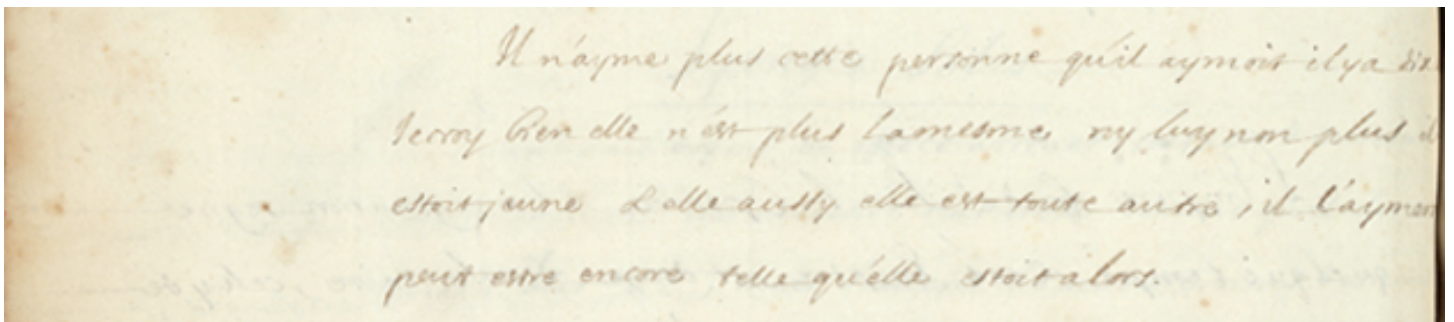 Il n'ayme plus cette personne qu'il aymoit il y a dix
Je croy bien elle n'est plus la mesme ny luy non plus il
estoit jeune & elle aussy elle est toute autre, il l'aymer
peut estre encore telle qu'elle estoit alors.